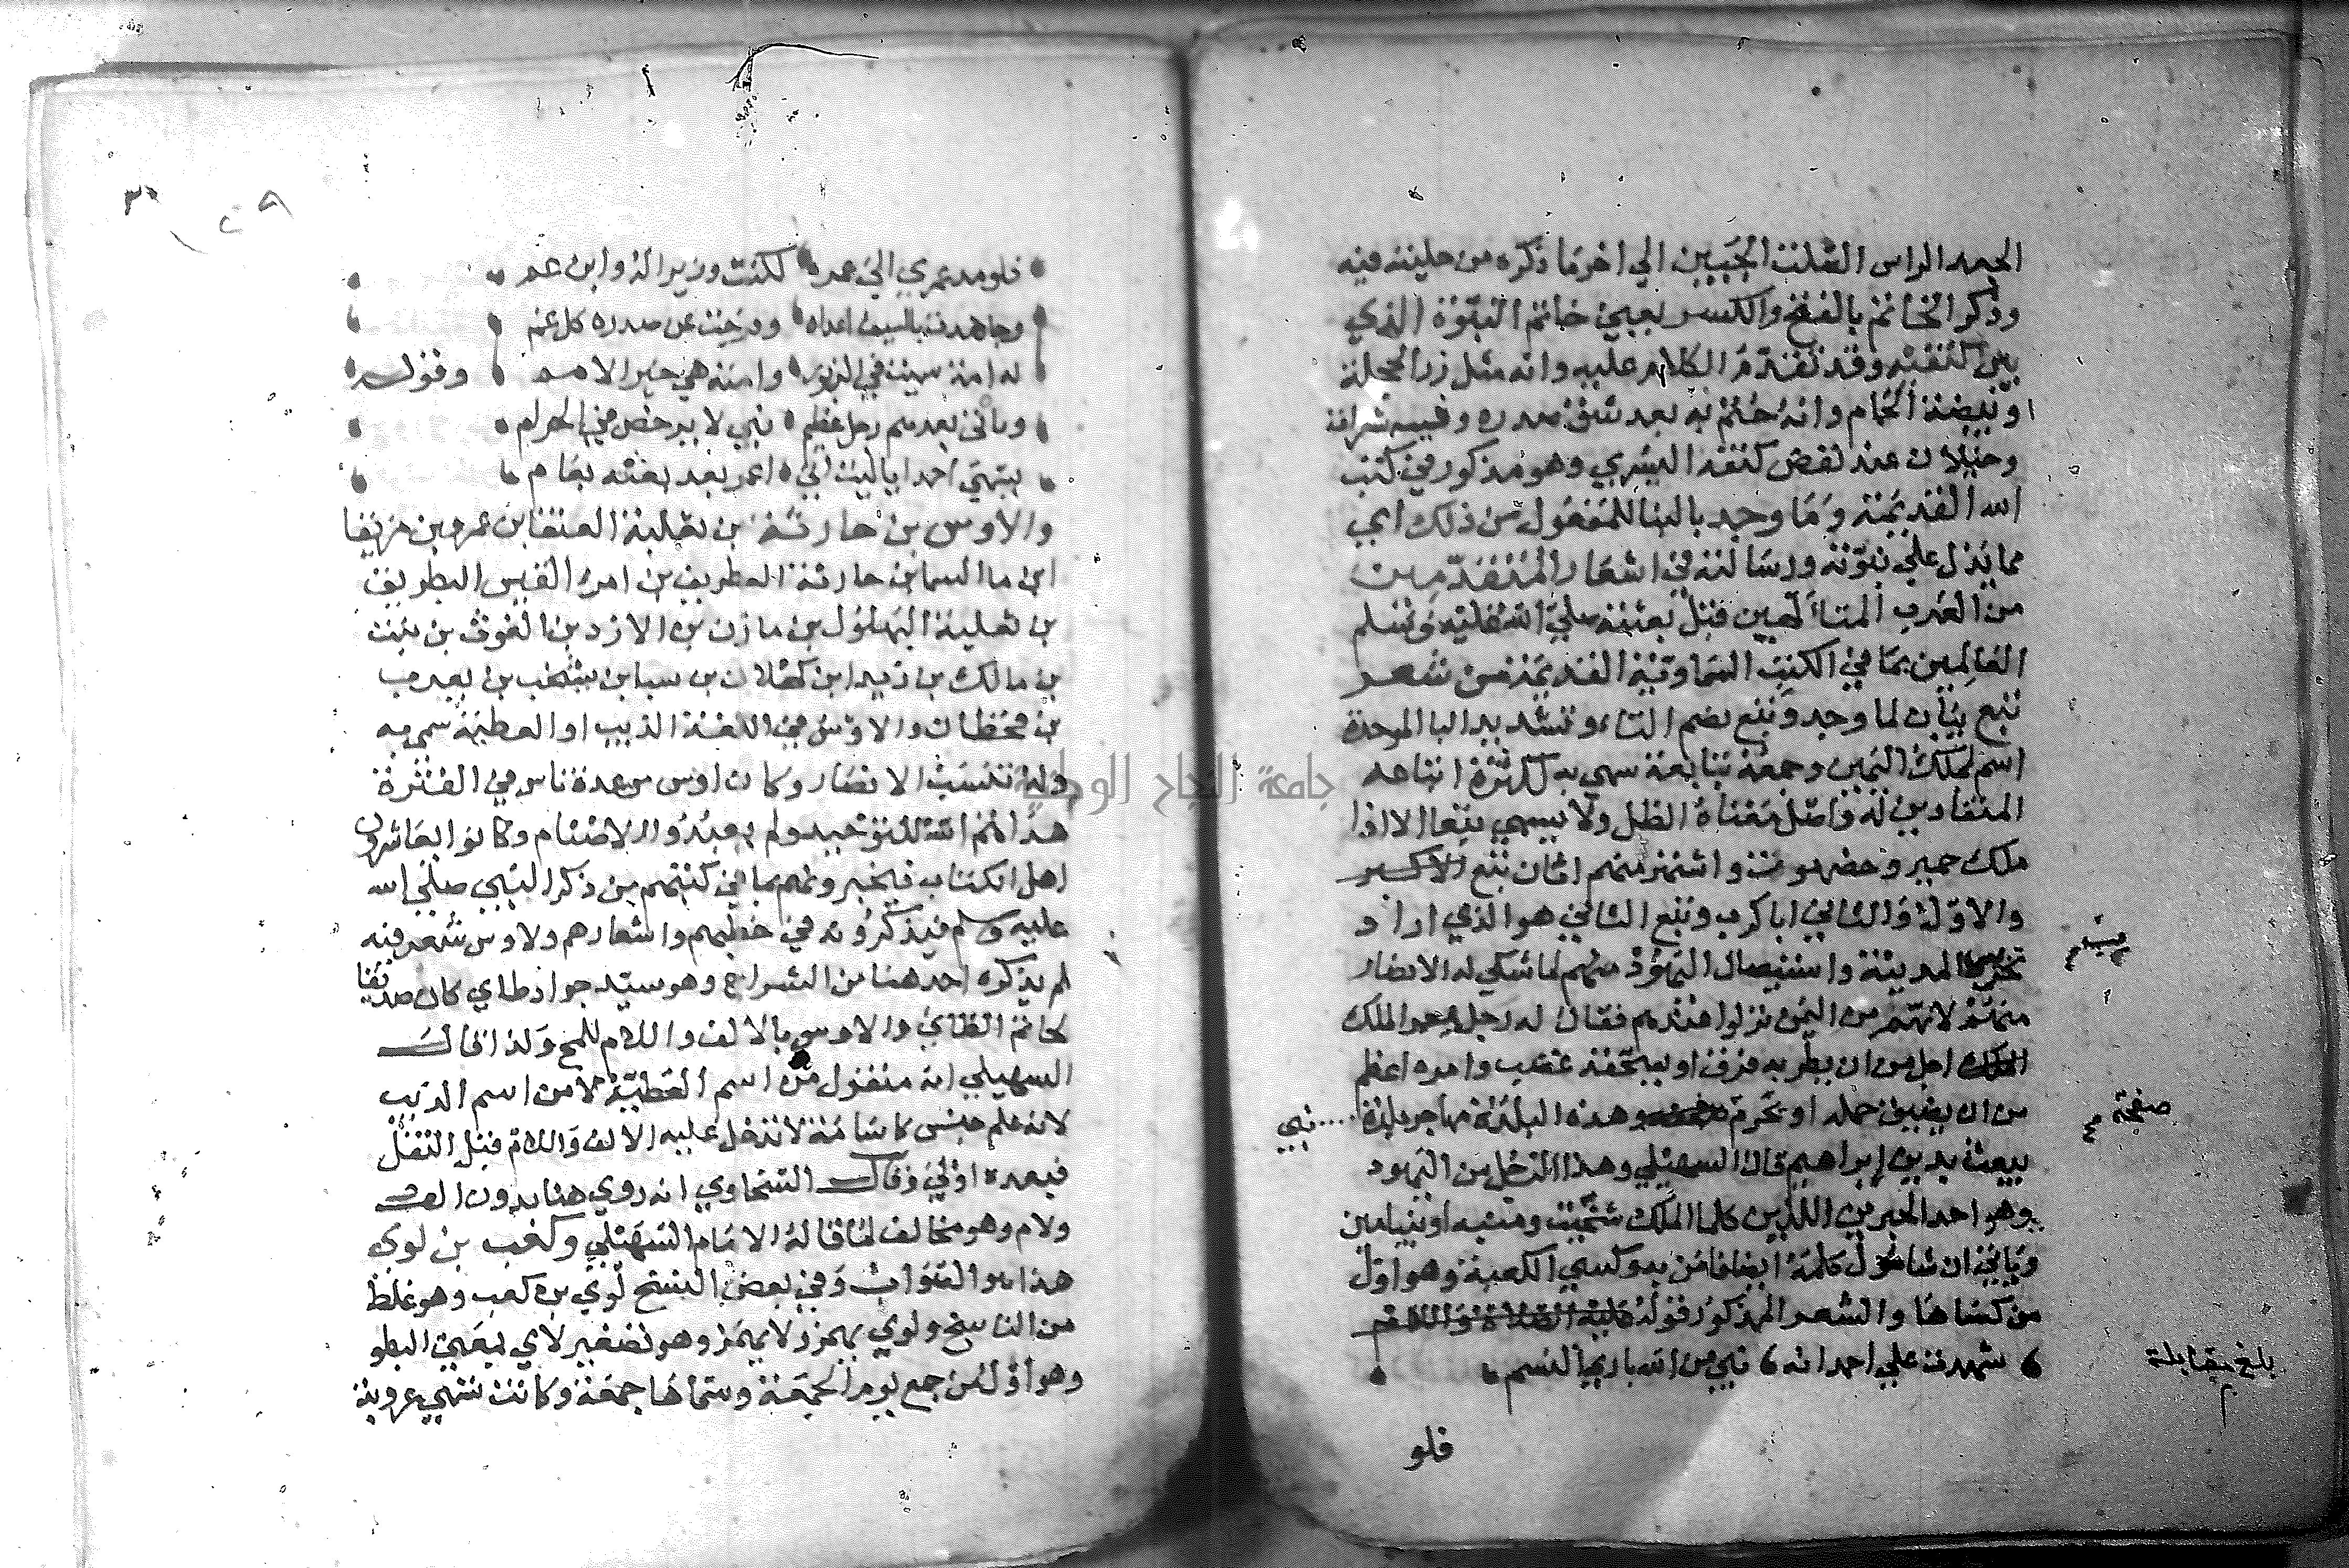 الجعد الراس الصلت الجبين الي اخر ما ذكره من حليته فيه
وذكر الخاتم بالفتح والكسر بمعني خاتم النبوّة الذي
بين كتفيه وقد تقدّم الكلام عليه وانه مثل زر الحجلة
او بيضة الحمام وانه ختم به بعد شق صدره وفيه شعرات
وخيلان عند نغض كتفه اليسري وهو مذكور في كتب
الله القديمة وما وجد بالبنا للمفعول من ذلك اي
مما يدل علي نبوّته ورسالته في اشعار المتقدّمين
من العرب المتألّهين قبل بعثته صلي الله عليه وسلم
العالمين بما في الكتب السماويّة القديمة من شعر
تبع بيان لما وجد وتبع بضم التاء وتشديد البا الموحدة
اسم لملك اليمن وجمعه تبابعة سمي به لكثرة اتباعه
المنقادين له واصل معناه الظل ولا يسمي تبعا الا اذا
ملك حمير وحضرموت واشتهر منهم اثنان تبع الاكبر
والاوّل والثاني ابا كرب وتبع الثاني هو الذي اراد
تخريب المدينة واستيصال اليهود منهم لما شكي له الانصار
منهم لانهم من اليمن نزلوا عندهم فقال له رجل معمر الملك
الملك اجل من ان يطير به نزق او يستخفه غضب وامره اعظم
من ان يضيق حمله او نحرم صفحه وهذه البلدة مهاجر نبي
يبعث بدين إبراهيم قال السهيلي وهذا الرجل من اليهود
وهو احد الحبرين اللذين كلما الملك شحيت ومنبه او بنيامين
وياتي ان شامول كلمه ايضا فامن به وكسي الكعبة وهو اول
من كساها والشعر المذكور قوله عليه الصلاة والسلام
شهدت علي احمد انه نبي من الله باري النسم
صفحه
بلغ مقابلة
فلو
فلو مد عمري الي عمره لكنت وزيرا له وابن عم
وجاهدت بالسيف اعداه وفرجت عن صدره كل غم
له امة سميت في الزبور وامته هي خير الامم وقوله
وياتي بعدهم رجل عظيم نبي لا يرخص في الحرام
يسمي احمدا يا ليت اني اعمر بعد بعثه بعام
والاوس بن حارثة بن ثعلبة العنقا بن عمرو بن مزيقيا
ابن ما السما بن حارثة الغطريف بن امرئ القيس البطريق
بن ثعلبة البهلول بن مازن بن الازد بن الغوث بن نبت
بن مالك بن زيد ابن كهلان بن سبا بن يشخب بن يعرب
بن قحطان والاوس في اللغة الذيب او العطية سمي به
وله تنتسب الانصار وكان اوس من عدة ناس في الفترة
هداهم الله للتوحيد ولم يعبدوا الاصنام وكانوا يعاشرون
اهل الكتاب فيخبرونهم بما في كتبهم من ذكر النبي صلي الله
عليه وسلم فيذكرونه في خطبهم واشعارهم ولاوس شعر فيه
لم يذكره احد هنا من الشراح وهو سيد جواد طاي كان صديقا
لحاتم الطائي والاوس بالالف واللام للمح ولذا قال
السهيلي انه منقول من اسم العطيّة لا من اسم الذيب
لانه علم جنس كاسامة لا تدخل عليه الالف واللام قبل النقل
فبعده اولي وقال السخاوي انه روي هنا بدون الف
ولام وهو مخالف لما قاله الامام السهيلي وكعب بن لوي
هذا هو الصواب وفي بعض النسخ لوي بن كعب وهو غلط
من الناسخ ولوي يهمز ولا يهمز وهو تصغير لاي بمعني البطو
وهو اوّل من جمع يوم الجمعة وسماها جمعة وكانت تسمي عروبة
جامعة النجاح الوطنية